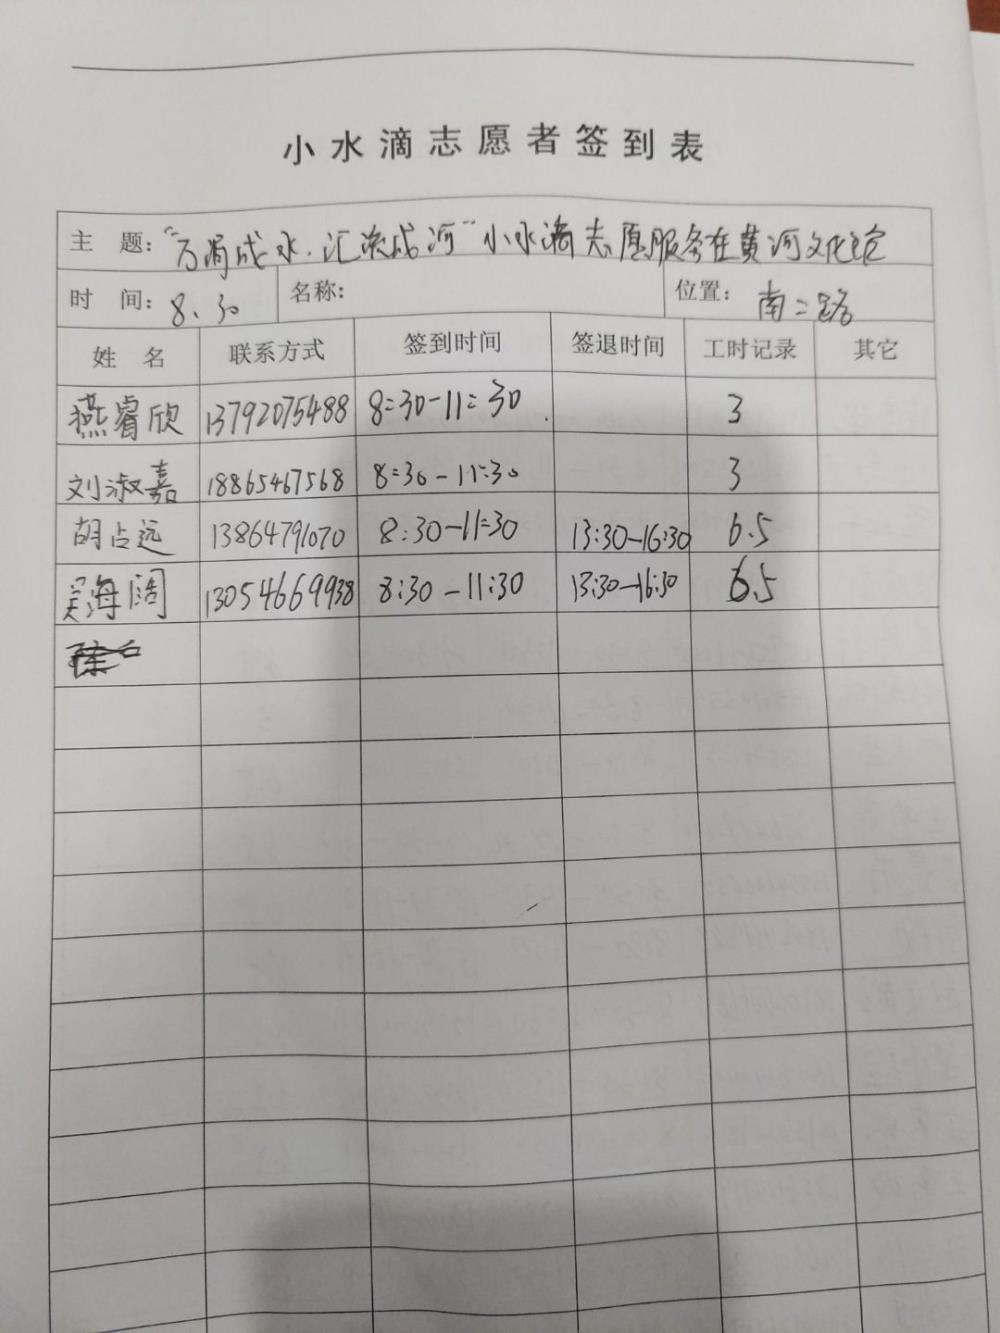 小水滴志愿者签到表
主 题："万滴成水.汇流成河"小水滴志愿服务在黄河文化馆
时 间：8.30 名称: 位置：南二路
姓 名 联系方式 签到时间 签退时间 工时记录 其它
燕睿欣 13792075488 8:30-11:30 3
刘淑嘉 18865467568 8:30-11:30 3
胡占远 13864791070 8:30-11:30 13:30-16:30 6.5
吴海阔 13054669938 8:30-11:30 13:30-16:30 6.5